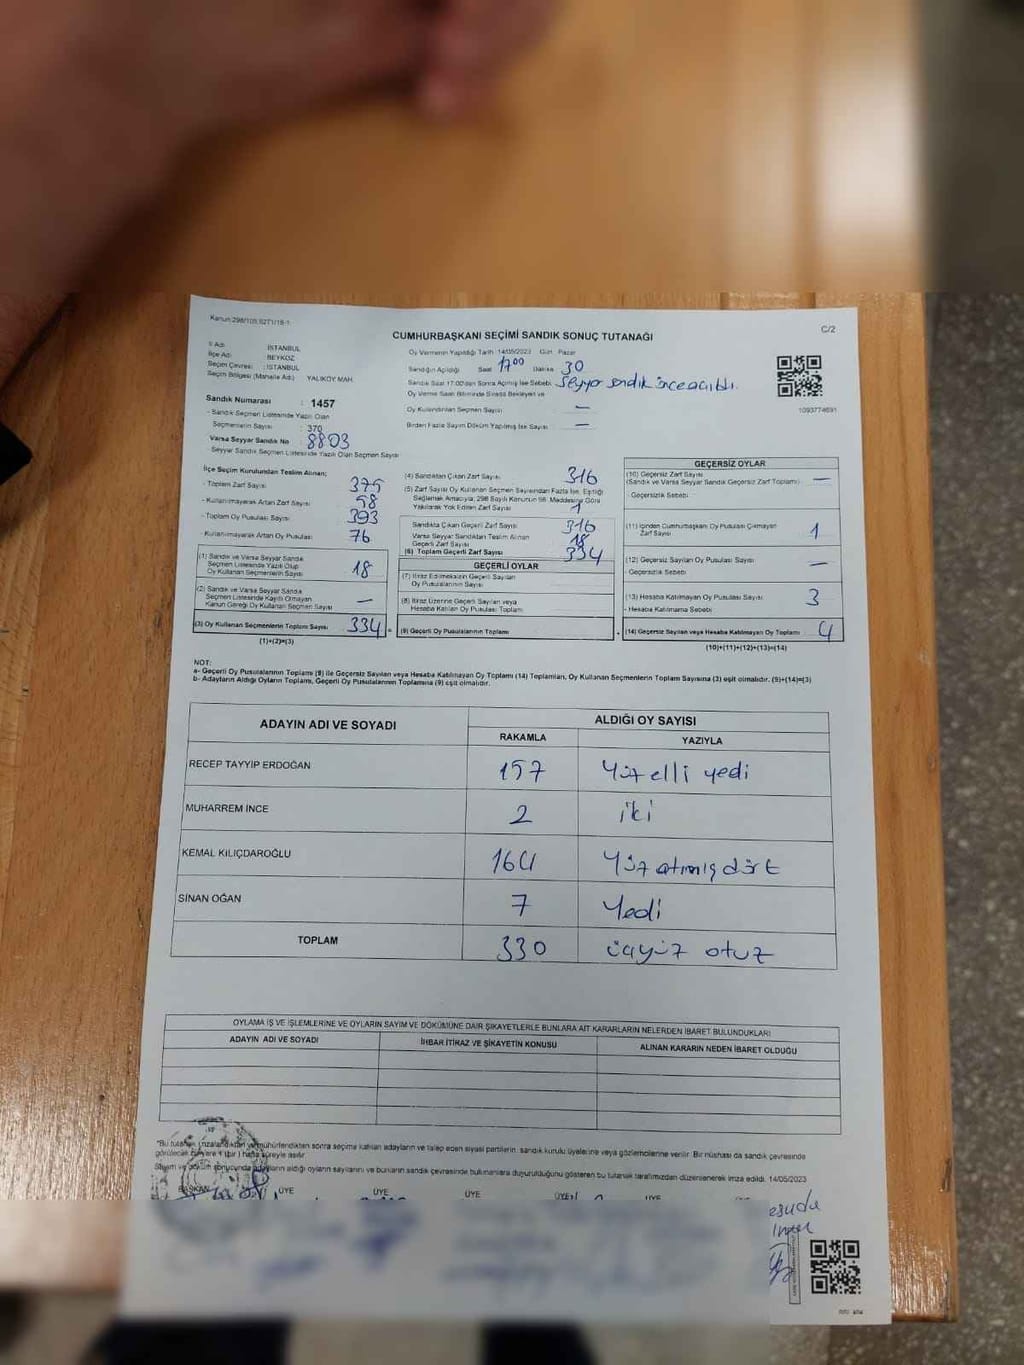 Kanun:298/105,6271/19-1
C/2
CUMHURBAŞKANI SEÇİMİ SANDIK SONUÇ TUTANAĞI
İl Adı : İSTANBUL
İlçe Adı : BEYKOZ
Seçim Çevresi : İSTANBUL
Seçim Bölgesi (Mahalle Adı) YALIKÖY MAH.
Oy Vermenin Yapıldığı Tarih :14/05/2023 Gün Pazar
Sandığın Açıldığı Saat 17 00 Dakika 30
Sandık Saat 17:00'den Sonra Açılmış İse Sebebi Seyyar sandık önce açıldı.
Oy Verme Saati Bitiminde Sırada Bekleyen ve
Oy Kullandırılan Seçmen Sayısı —
Birden Fazla Sayım Döküm Yapılmış İse Sayısı —
1093774691
Sandık Numarası : 1457
- Sandık Seçmen Listesinde Yazılı Olan
Seçmenlerin Sayısı : 370
Varsa Seyyar Sandık No 8803
- Seyyar Sandık Seçmen Listesinde Yazılı Olan Seçmen Sayısı
İlçe Seçim Kurulundan Teslim Alınan;
- Toplam Zarf Sayısı 375
- Kullanılmayarak Artan Zarf Sayısı 58
- Toplam Oy Pusulası Sayısı 393
- Kullanılmayarak Artan Oy Pusulası 76
(1) Sandık ve Varsa Seyyar Sandık
Seçmen Listesinde Yazılı Olup
Oy Kullanan Seçmenlerin Sayısı 18
(2) Sandık ve Varsa Seyyar Sandık
Seçmen Listesinde Kayıtlı Olmayan
Kanun Gereği Oy Kullanan Seçmen Sayısı —
(3) Oy Kullanan Seçmenlerin Toplam Sayısı 334
(1)+(2)=(3)
(4) Sandıktan Çıkan Zarf Sayısı 316
(5) Zarf Sayısı Oy Kullanan Seçmen Sayısından Fazla İse, Eşitliği
Sağlamak Amacıyla; 298 Sayılı Kanunun 98. Maddesine Göre
Yakılarak Yok Edilen Zarf Sayısı 1
Sandıkta Çıkan Geçerli Zarf Sayısı 316
Varsa Seyyar Sandıktan Teslim Alınan
Geçerli Zarf Sayısı 18
(6) Toplam Geçerli Zarf Sayısı 334
GEÇERLİ OYLAR
(7) İtiraz Edilmeksizin Geçerli Sayılan
Oy Pusulalarının Sayısı
(8) İtiraz Üzerine Geçerli Sayılan veya
Hesaba Katılan Oy Pusulası Toplamı
(9) Geçerli Oy Pusulalarının Toplamı
GEÇERSİZ OYLAR
(10) Geçersiz Zarf Sayısı
(Sandık ve Varsa Seyyar Sandık Geçersiz Zarf Toplamı) —
Geçersizlik Sebebi
(11) İçinden Cumhurbaşkanı Oy Pusulası Çıkmayan
Zarf Sayısı 1
(12) Geçersiz Sayılan Oy Pusulası Sayısı —
- Geçersizlik Sebebi
(13) Hesaba Katılmayan Oy Pusulası Sayısı 3
- Hesaba Katılmama Sebebi
(14) Geçersiz Sayılan veya Hesaba Katılmayan Oy Toplamı 4
(10)+(11)+(12)+(13)=(14)
NOT:
a- Geçerli Oy Pusulalarının Toplamı (9) ile Geçersiz Sayılan veya Hesaba Katılmayan Oy Toplamı (14) Toplamları, Oy Kullanan Seçmenlerin Toplam Sayısına (3) eşit olmalıdır. (9)+(14)=(3)
b- Adayların Aldığı Oyların Toplamı, Geçerli Oy Pusulalarının Toplamına (9) eşit olmalıdır.
ADAYIN ADI VE SOYADI
ALDIĞI OY SAYISI
RAKAMLA YAZIYLA
RECEP TAYYİP ERDOĞAN 157 Yüz elli yedi
MUHARREM İNCE 2 iki
KEMAL KILIÇDAROĞLU 164 Yüz atmış dört
SİNAN OĞAN 7 Yedi
TOPLAM 330 üçyüz otuz
OYLAMA İŞ VE İŞLEMLERİNE VE OYLARIN SAYIM VE DÖKÜMÜNE DAİR ŞİKAYETLERLE BUNLARA AİT KARARLARIN NELERDEN İBARET BULUNDUKLARI
ADAYIN ADI VE SOYADI İHBAR İTİRAZ VE ŞİKAYETİN KONUSU ALINAN KARARIN NEDEN İBARET OLDUĞU
"Bu tutanak imzalandıktan ve mühürlendikten sonra seçime katılan adayların ve talep eden siyasi partilerin sandık kurulu üyelerine veya gözlemcilerine verilir. Bir nüshası da sandık çevresinde
görülecek bir yere 1 (bir) hafta süreyle asılır.
Sayım ve döküm sonucunda adayların aldığı oyların sayılarını ve bunların sandık çevresinde bulunanlara duyurulduğunu gösteren bu tutanak tarafımızdan düzenlenerek imza edildi. 14/05/2023
BAŞKAN ÜYE ÜYE ÜYE ÜYE ÜYE